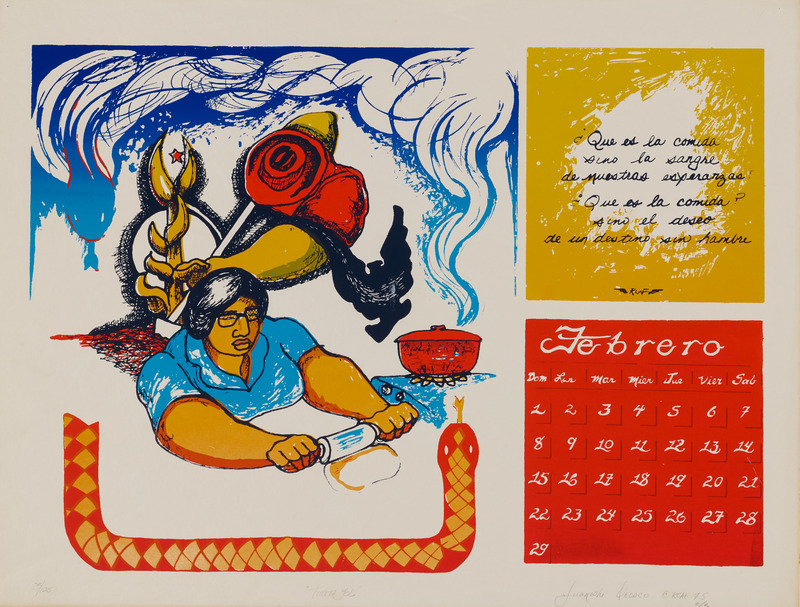 ¿Que es la comida
sino la sangre
de nuestras esperanzas!
¿Que es la comida?
sino el deseo
de un destino sin hambre
RVF
Febrero
Dom Lun Mar Mier Jue Vier Sab
1 2 3 4 5 6 7
8 9 10 11 12 13 14
15 16 17 18 19 20 21
22 23 24 25 26 27 28
29